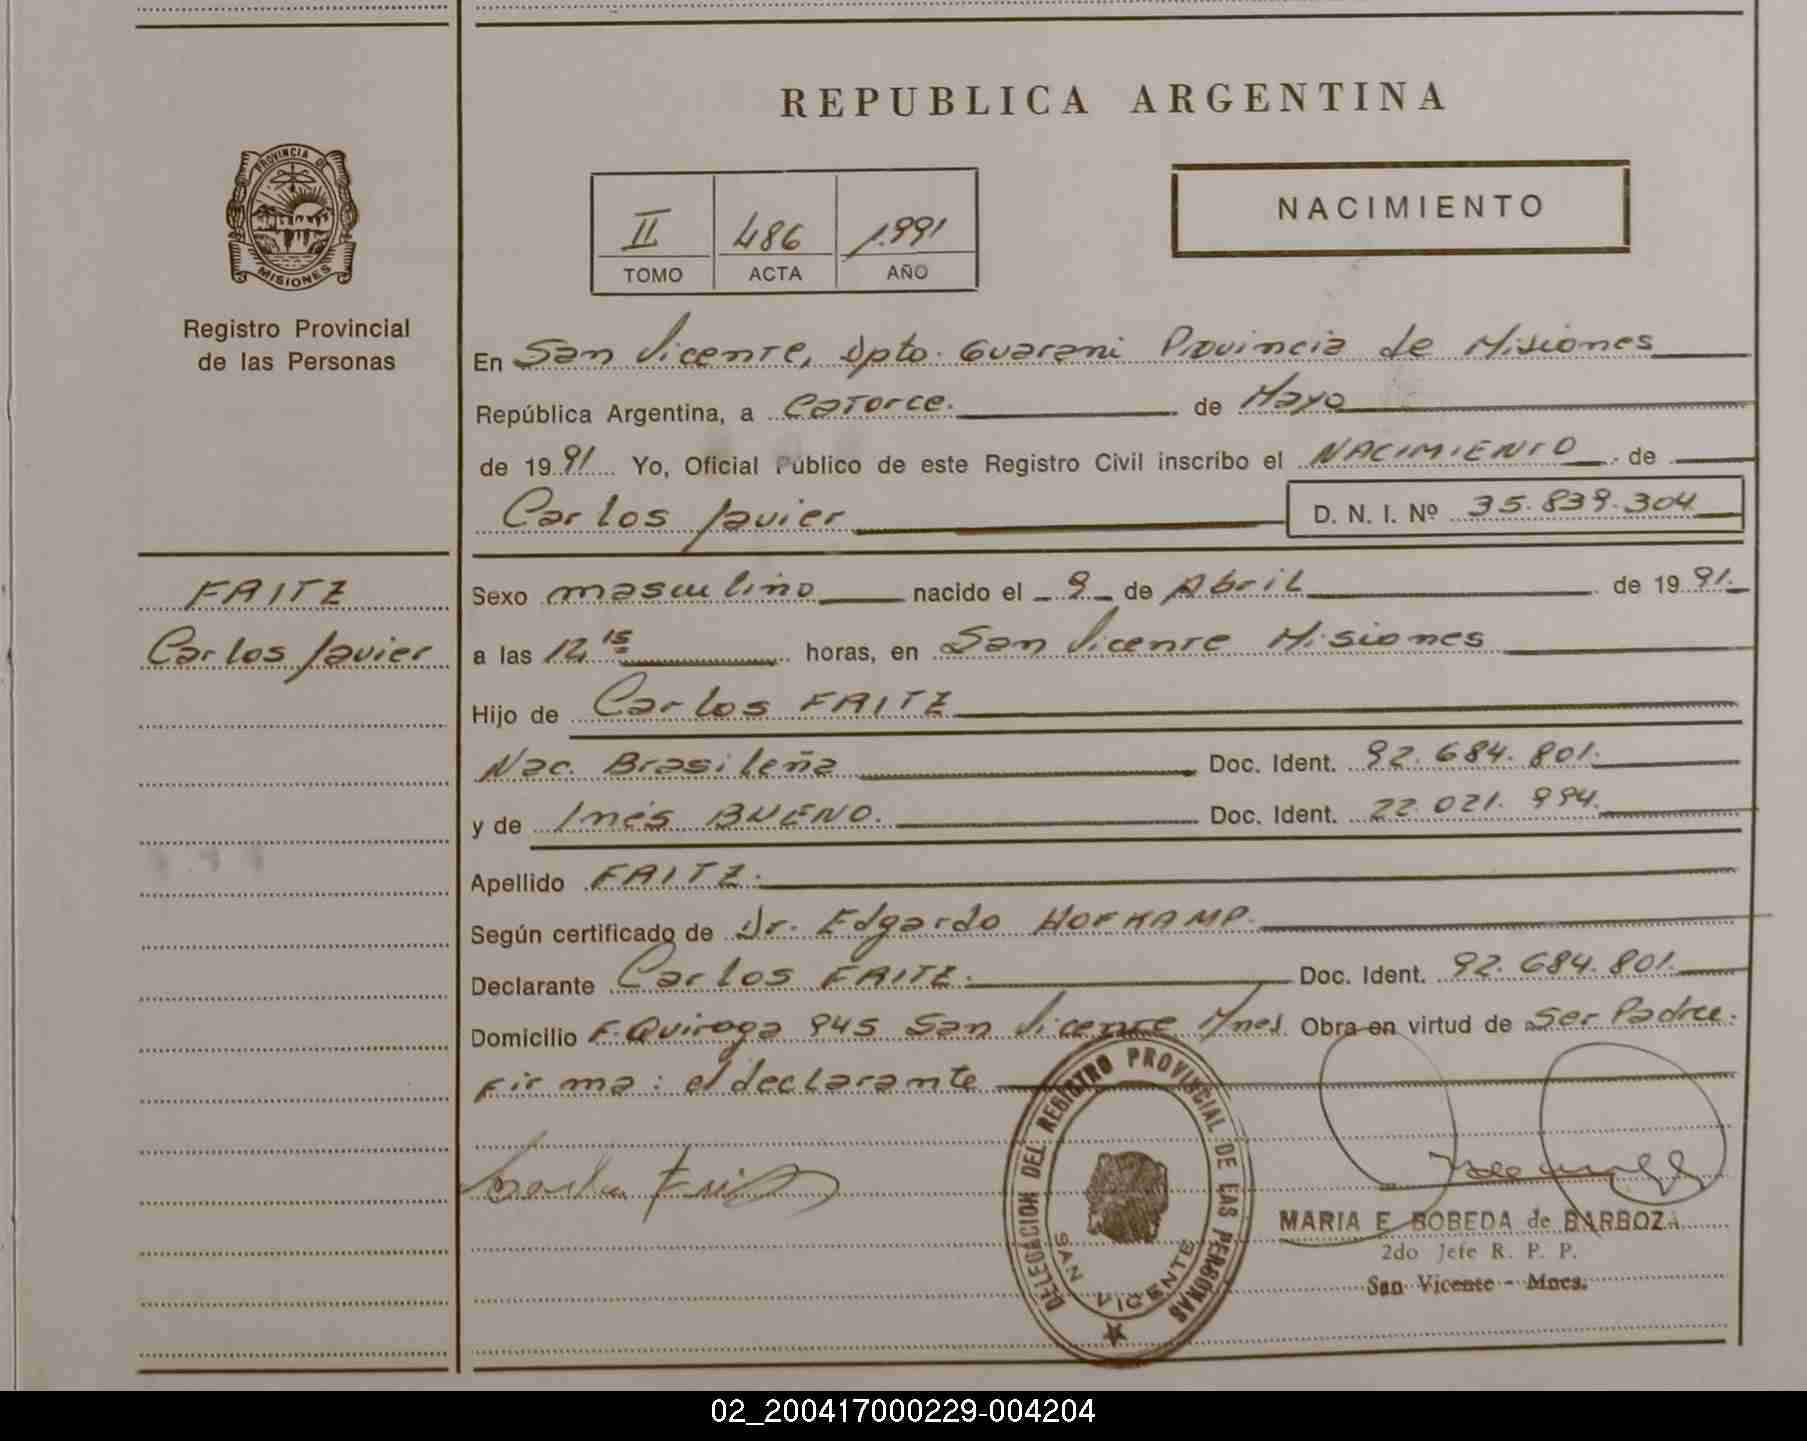 REPUBLICA ARGENTINA
PROVINCIA DE
MISIONES
Registro Provincial
de las Personas
II 486 1.991
TOMO ACTA AÑO
NACIMIENTO
En San Vicente, Dpto. Guarani Provincia de Misiones
República Argentina, a Catorce. de Mayo
de 1991 Yo, Oficial Público de este Registro Civil inscribo el NACIMIENTO de
Carlos Javier D. N. I. Nº 35.839.304
FRITZ
Carlos Javier
Sexo masculino nacido el 9 de Abril de 1991.
a las 12 15 horas, en San Vicente Misiones
Hijo de Carlos FRITZ
Nac. Brasileña Doc. Ident. 92.684.801.
y de Inés BUENO. Doc. Ident. 22.021.994.
Apellido FRITZ.
Según certificado de Dr. Edgardo HOFKAMP.
Declarante Carlos FRITZ. Doc. Ident. 92.684.801.
Domicilio F. Quiroga 945 San Vicente Mnes. Obra en virtud de ser Padre.
Firma: el declarante
DELEGACION DEL REGISTRO PROVINCIAL DE LAS PERSONAS
SAN VICENTE
MARIA E. BOBEDA de BARBOZA
2do Jefe R. P. P.
San Vicente - Mnes.
02_200417000229-004204